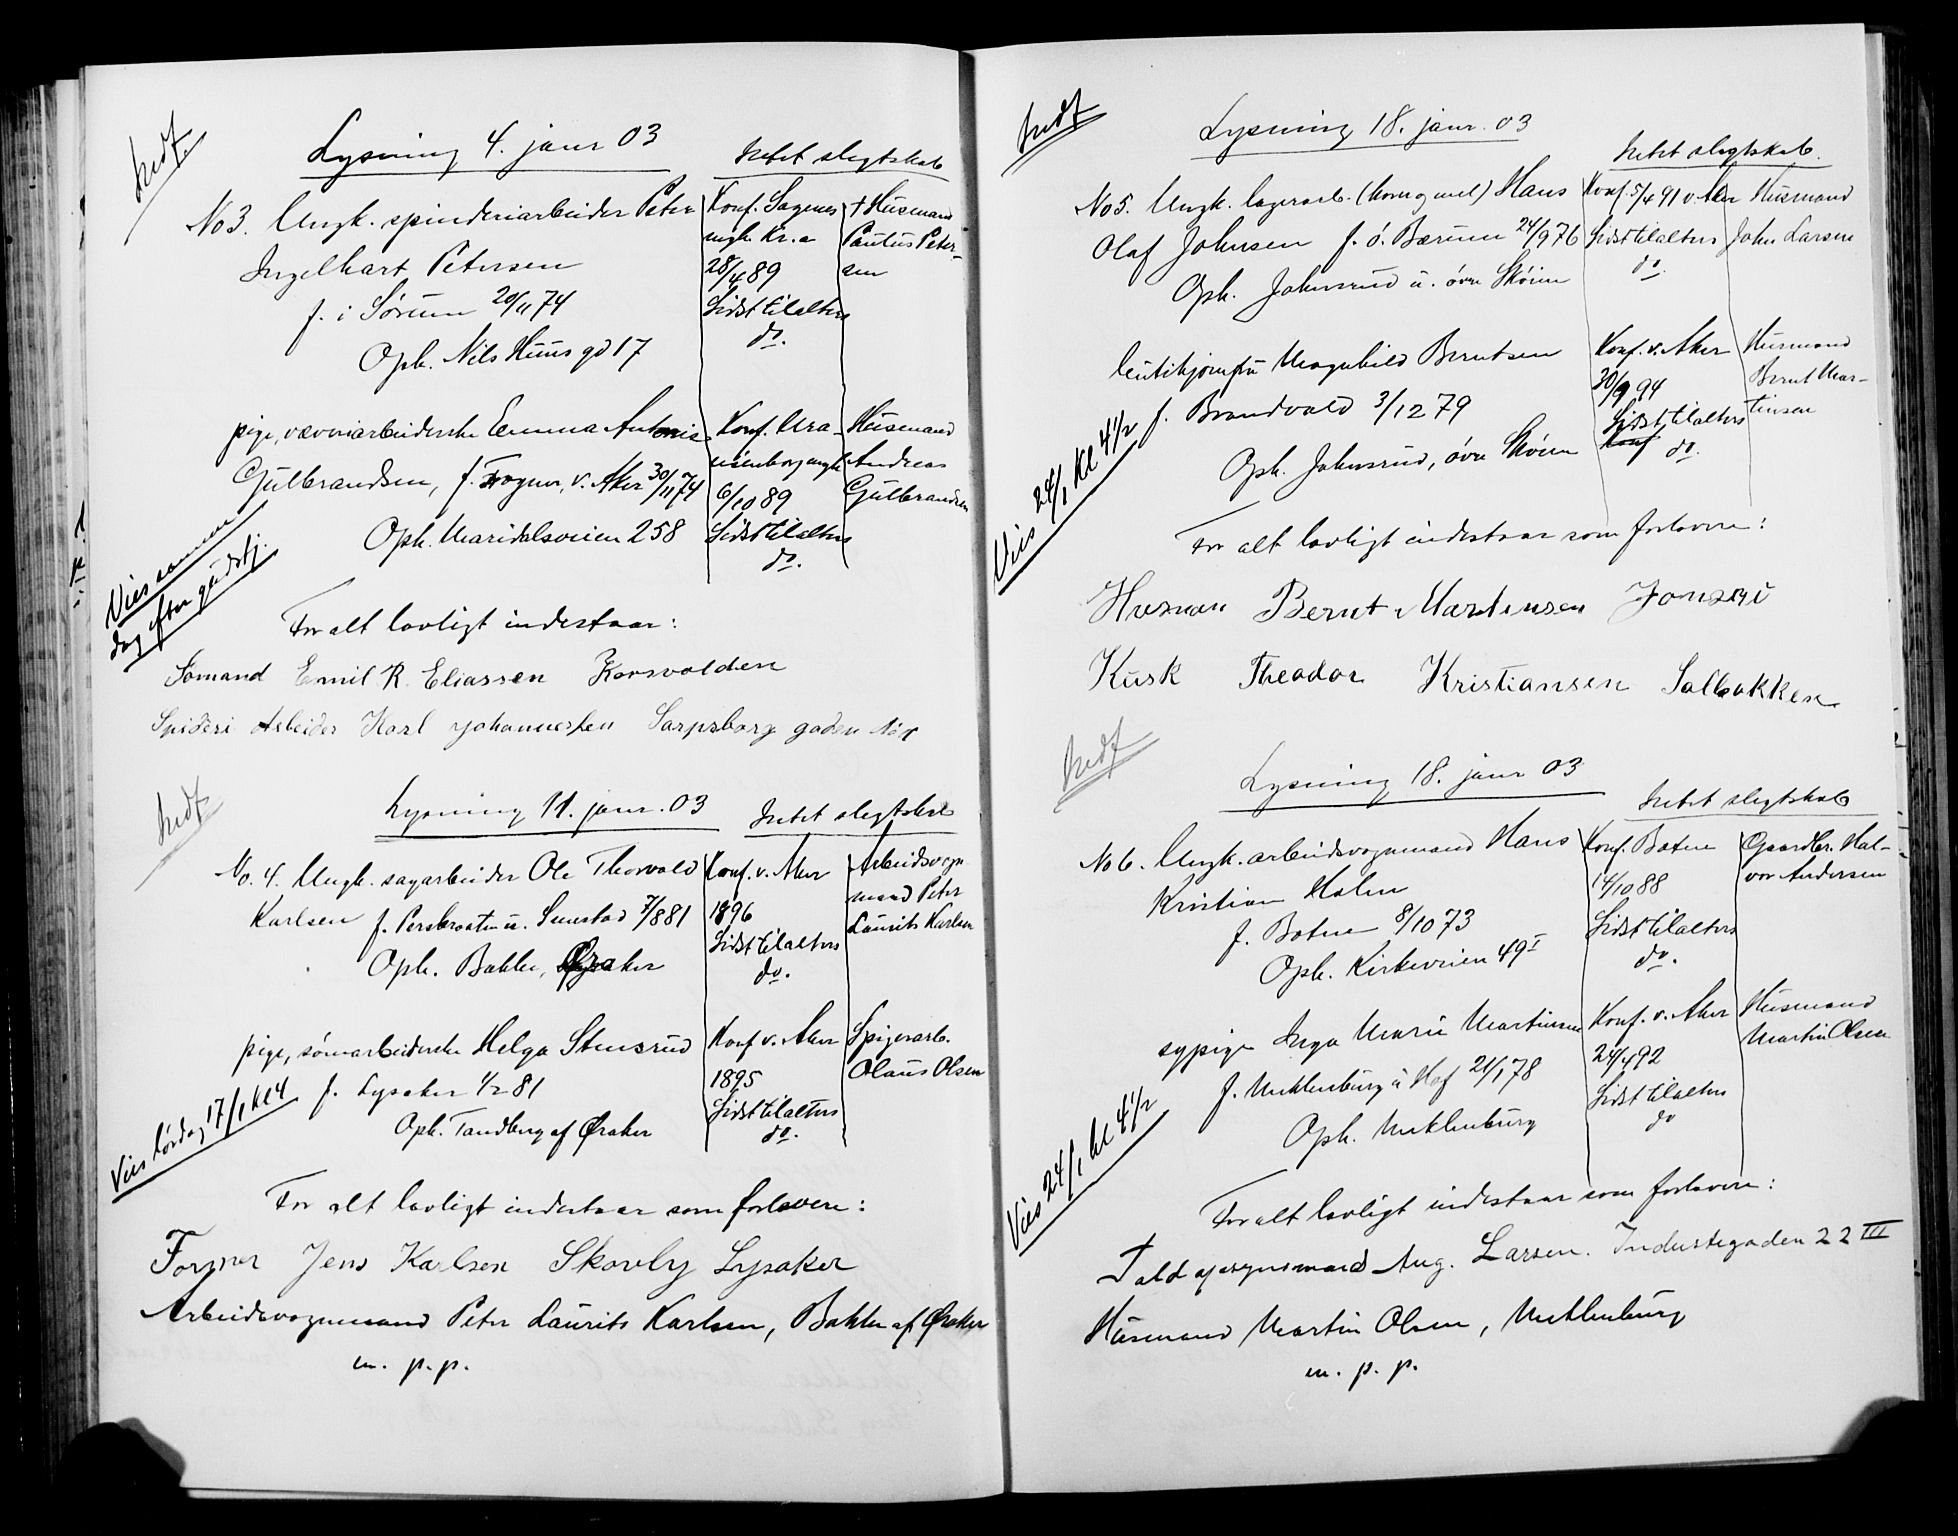 Indf.
Lysning 4. janr 03
Intet slegtskab
No 3. Ungk. spinderiarbeider Peter
Ingelhart Petersen
f. i Sørum 20/11 74
Oph. Nils Huus gd 17
Konf. Sagenes
mgh. Kr.a
28/4 89
Sidst tilalters
do.
† Husmand
Paulus Peter-
sen
pige, væveriarbeiderske Emma Antonie
Gulbrandsen, f. Frogner, v. Aker 30/11 74
Oph. Maridalsveien 258
Konf. Ura-
nienborg mgh
6/10 89
Sidst tilalters
do.
Husmand
Andreas
Gulbrandsen
Vies samme
dag efter gudstj.
For alt lovligt indestaar:
Sømand Emil R. Eliassen Korsvolden
Spideri Arbeider Karl Johannesen Sarpsborg gaden No
Indf.
Lysning 11. janr. 03
Intet slegtskab
No. 4. Ungk. sagarbeider Ole Thorvald
Karlsen f. Persbraaten u. Smestad 7/8 81
Oph. Bakken, Øraker
Konf. v. Aker
1896
Sidst tilalters
do.
Arbeidsvogn-
mand Peter
Laurits Karlsen
pige, sømarbeiderske Helga Stensrud
f. Lysaker 1/2 81
Oph. Tandberg af Øraker
Konf v. Aker
1895
Sidst tilalters
do.
Spigerarb.
Olaus Olsen
Vies Lørdag 17/1 kl 4
For alt lovligt indestaar som forlovere:
Former Jens Karlsen Skovly Lysaker
Arbeidsvognmand Peter Laurits Karlsen, Bakken af Øraker
m. p. p.
Indf
Lysning 18. janr. 03
Intet slegtskab.
No 5. Ungk. lagerarb. (korn og mel) Hans
Olaf Johnsen f. i Bærum 24/9 76
Oph. Johnsrud u. øvre Skøien
Konf. 5/4 91 v. Aker
Sidst tilalters
do.
Husmand
John Larsen
butikjomfru Magnhild Berntsen
f. Brandvold 3/12 79
Oph. Johnsrud, øvre Skøien
Konf. v. Aker
30/9 94
Sidst tilalters
Konf do.
Husmand
Bernt Mar-
tinsen
Vies 24/1 kl 4 1/2
For alt lovligt indestaar som forlovere:
Husman Bernt Martinsen Jonsru
Kusk Theodor Kristiansen Solbakken
Indf
Lysning 18. janr 03
Intet slegtskab
No 6. Ungk. arbeidsvognmand Hans
Kristian Holm
f. Botne 8/10 73
Oph. Kirkeveien 49 I
Konf. Botne
14/10 88
Sidst tilalters
do.
Gaardbr. Hal-
vor Andersen
sypige Inga Marie Martinsen
f. Meklenburg u Hof 21/1 78
Oph. Meklenburg
Konf. v. Aker
24/4 92
Sidst tilalters
do
Husmand
Martin Olsen
Vies 24/1 kl 4 1/2
For alt lovligt indestaar som forlovere:
Toldopsynsmand Aug. Larsen. Industegaden 22 III
Husmand Martin Olsen, Meklenburg
m. p. p.